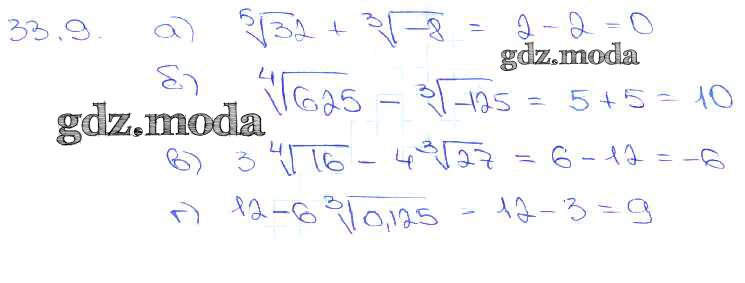 33.9. а) ⁵√32 + ³√-8 = 2 - 2 = 0
gdz.moda
б) ⁴√625 - ³√-125 = 5 + 5 = 10
gdz.moda
в) 3 ⁴√16 - 4 ³√27 = 6 - 12 = -6
г) 12 - 6 ³√0,125 = 12 - 3 = 9